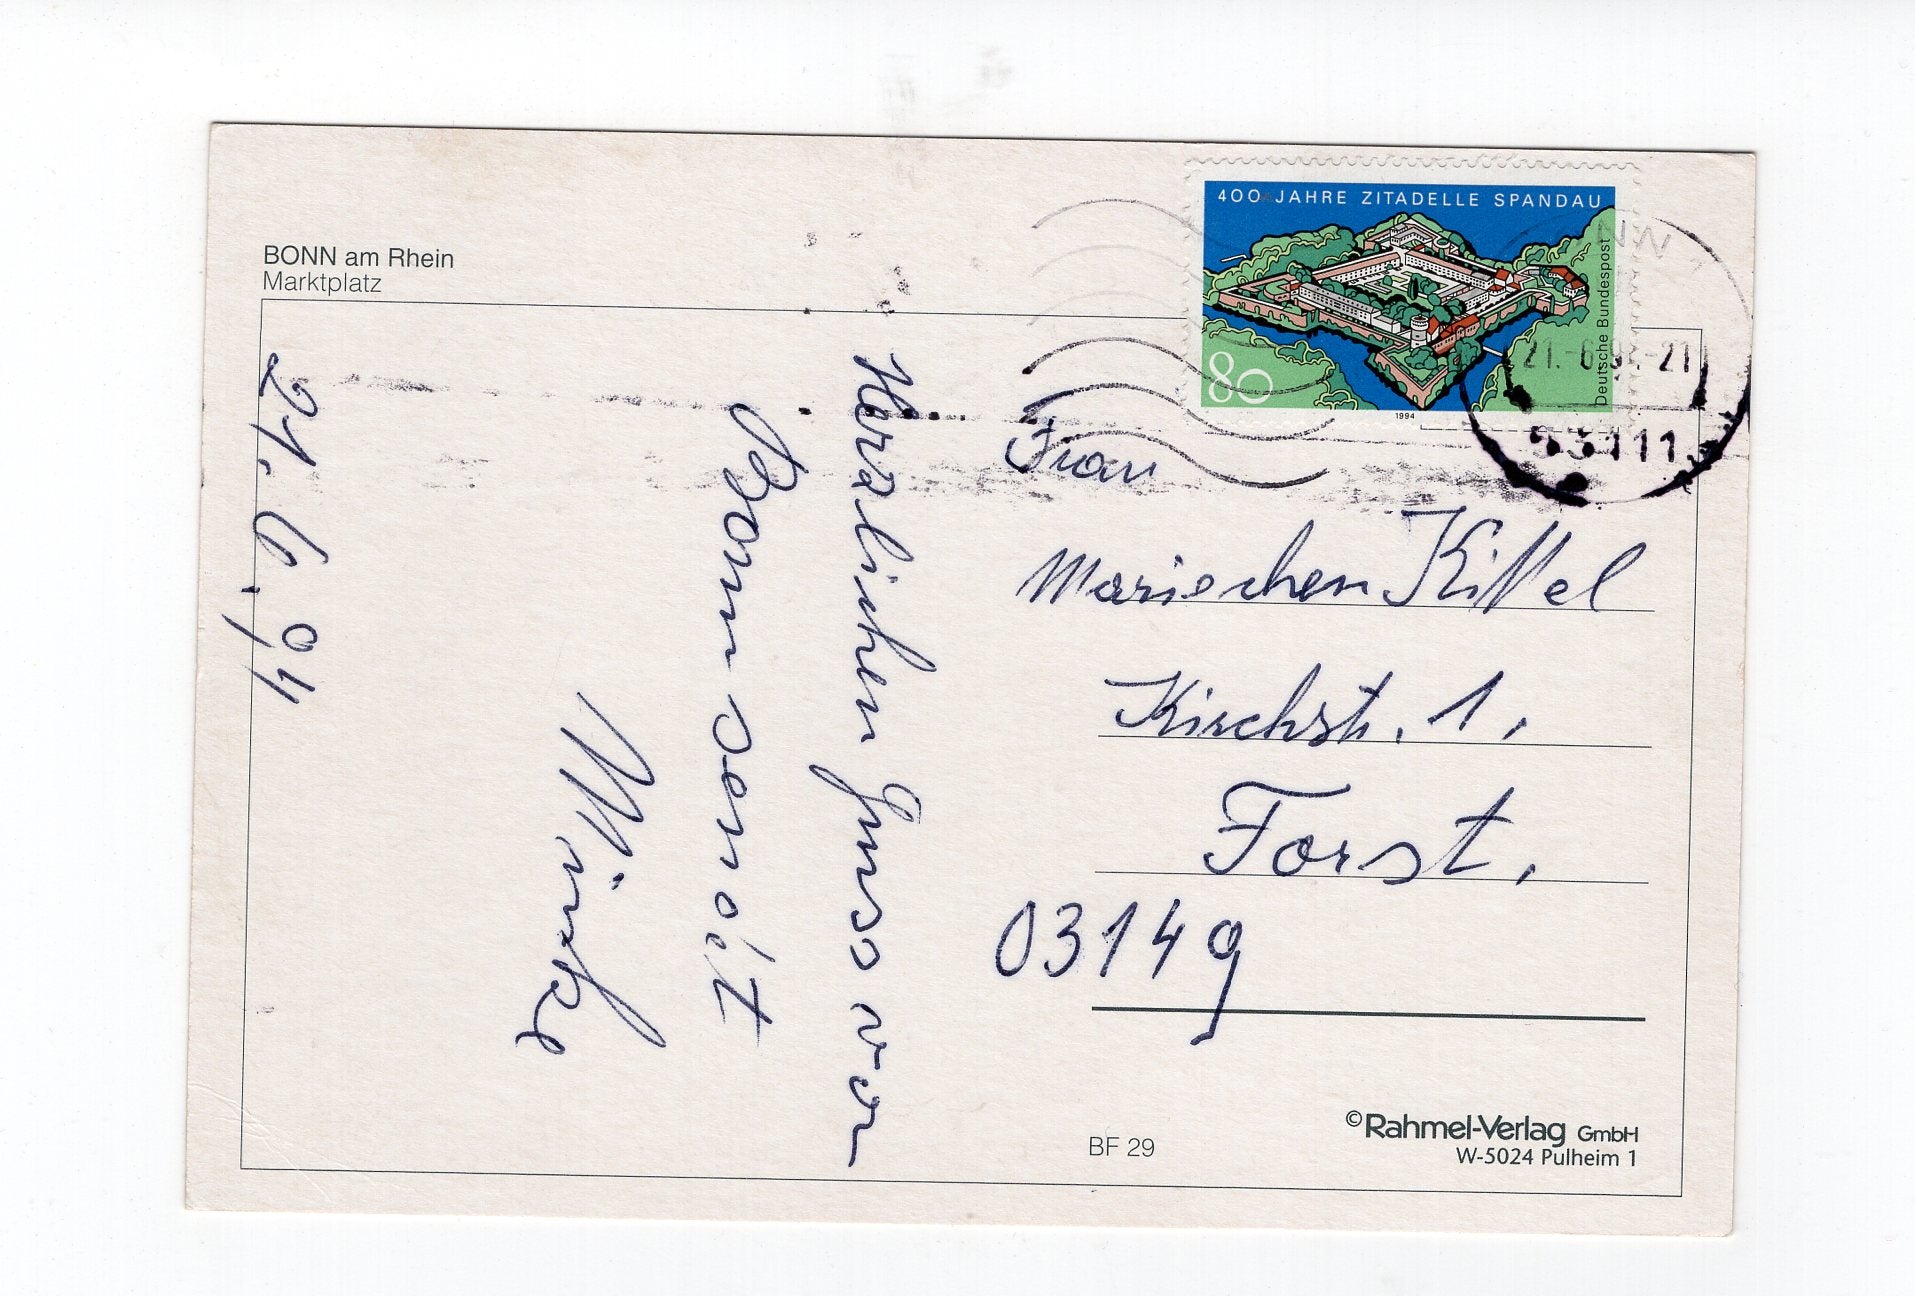 BONN am Rhein
Marktplatz
21.6.94
Herzlichen Gruss von
Bonn sendet
400 JAHRE ZITADELLE SPANDAU
80
Deutsche Bundespost
1994
21.-6.94-21
53111
Frau
Marischen Kittel
Kirchstr. 1,
Forst,
03149
BF 29
©Rahmel-Verlag GmbH
W-5024 Pulheim 1